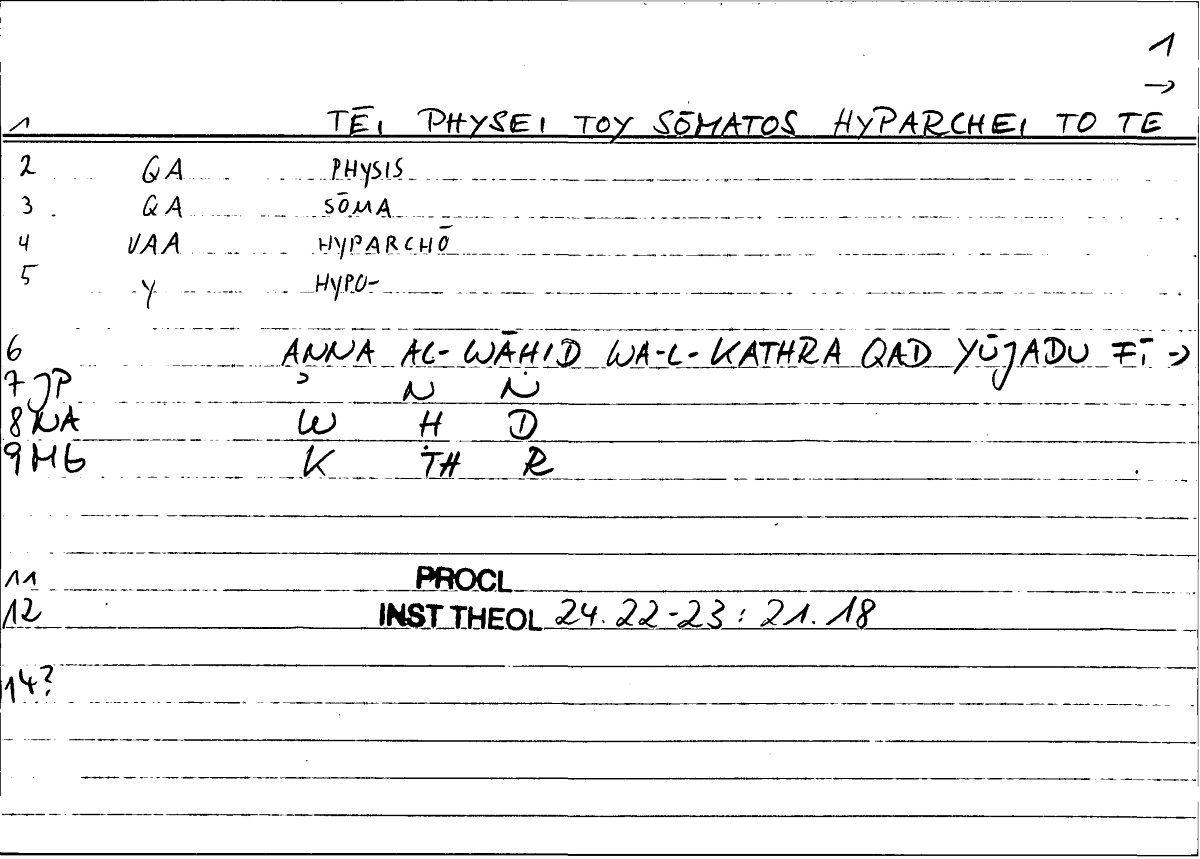 1
→
1 TĒI PHYSEI TOY SŌMATOS HYPARCHEI TO TE
2 QA PHYSIS
3 QA SŌMA
4 VAA HYPARCHŌ
5 Y HYPO-
6 ANNA AL-WĀHID WA-L-KATHRA QAD YŪJADU FĪ →
7 JP ʾ N N
8 NA W H D
9 MG K TH R
11 PROCL
12 INST THEOL 24.22-23 : 21.18
14?